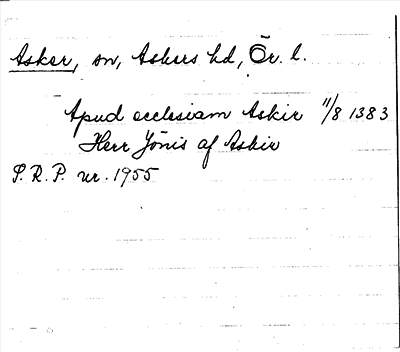 Asker, sn, Askers hd, Ör. l.
Apud ecclesiam Askir 11/8 1383
Herr Jönis af Askir
S.R.P. nr. 1955